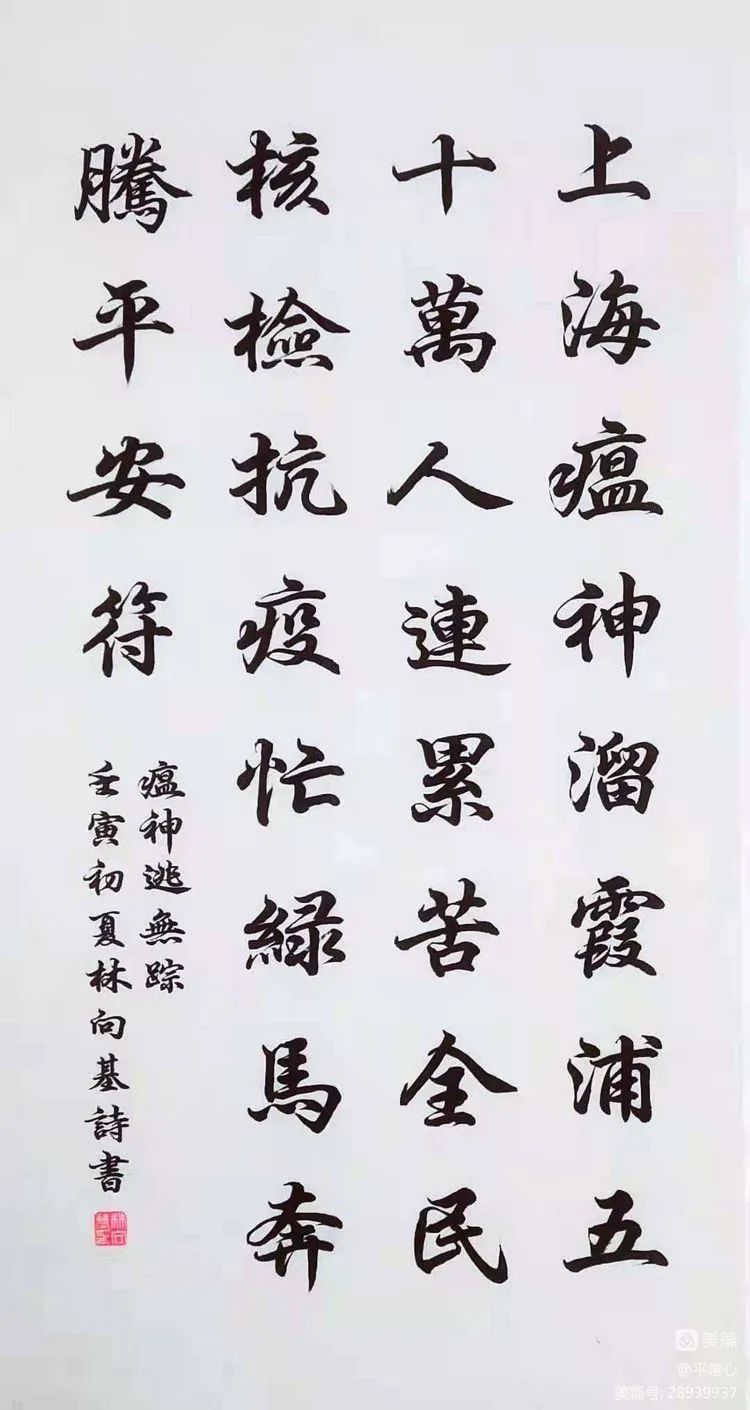 上海瘟神溜霞浦五
十萬人連累苦全民
核檢抗疫忙綠馬奔
騰平安符
瘟神逃無踪
壬寅初夏林向基詩書
美篇
@平常心
美篇号: 28939937